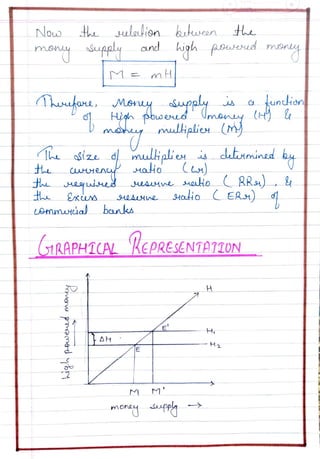 Now the relation between the
money supply and high powered money
M = mH
Therefore, Money supply is a function
of High powered money (H) &
money multiplier (m)
The size of multiplier is determined by
the currency ratio (Cr)
the required reserve ratio (RRr), &
the Excess reserve ratio (ERr) of
commercial banks
GRAPHICAL REPRESENTATION
high powered money →
H
E'
H₁
ΔH
H₂
E
M M'
money supply →